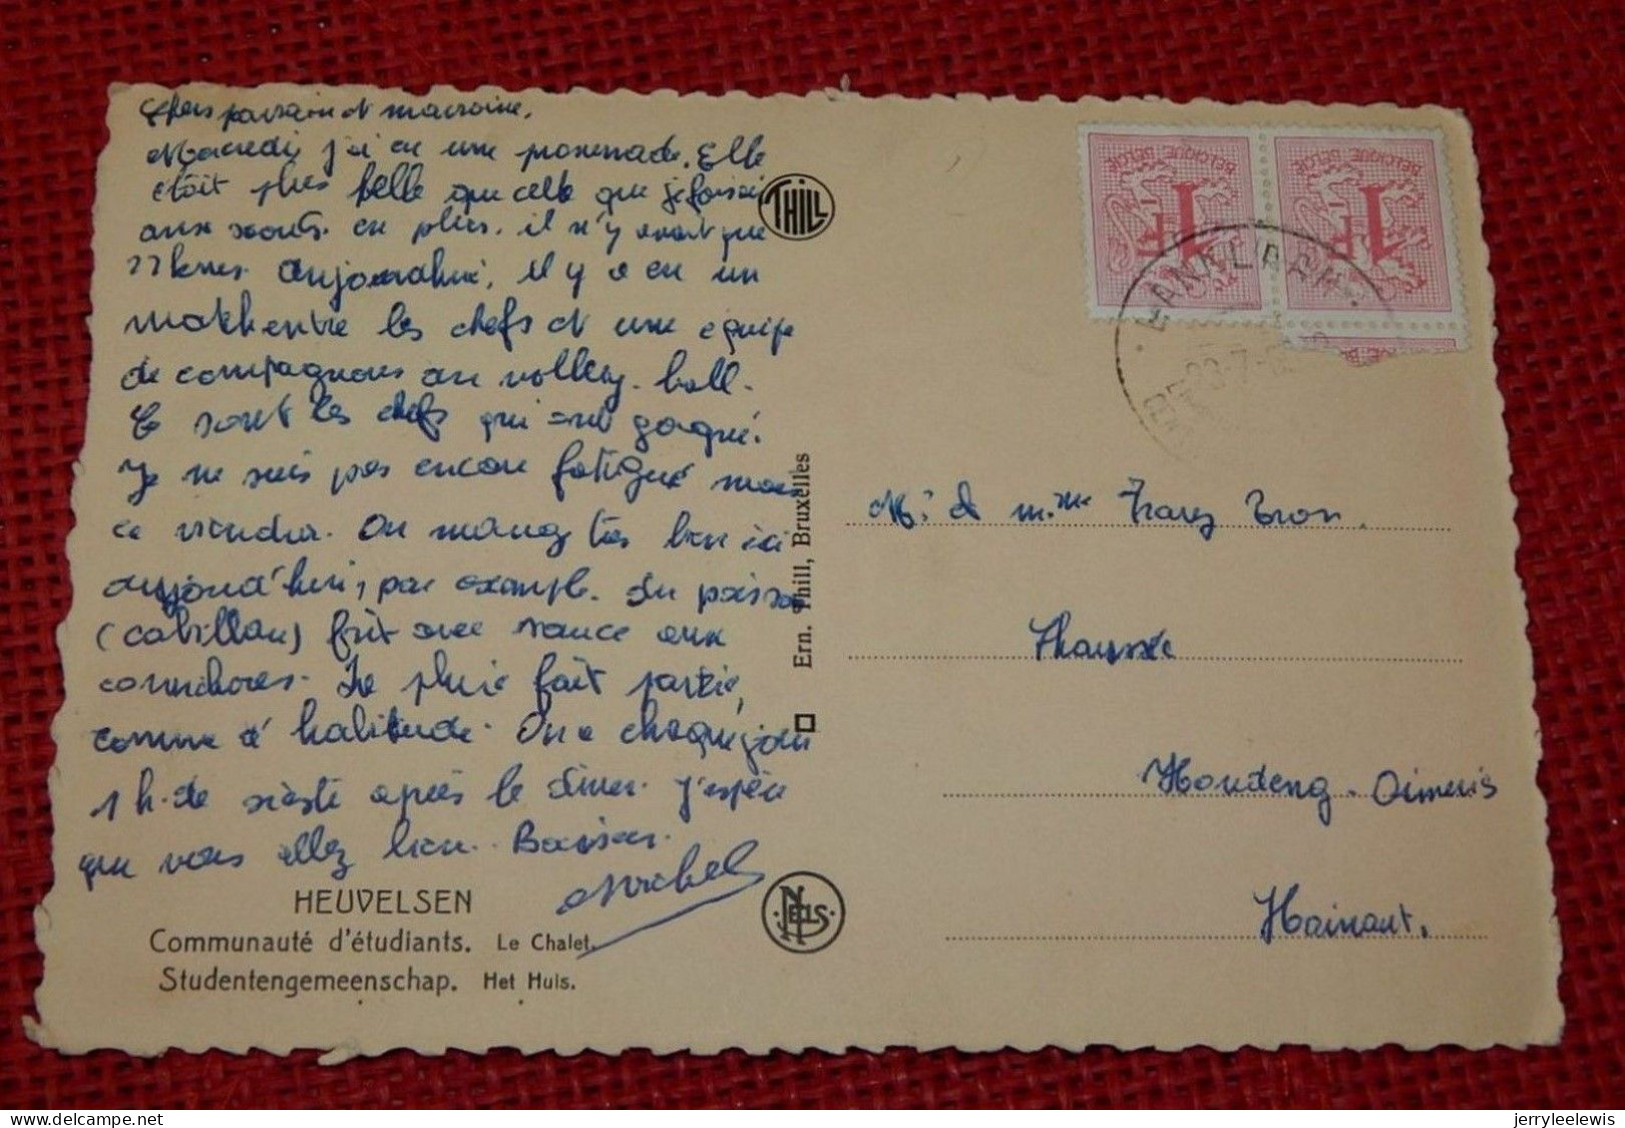 Chers parrain et marraine.
Mercredi j'ai eu une promenade. Elle
était plus belle que celle que je faisais
aux scouts. en plus. il n'y avait que
22 kms. Aujourdhui, il y a eu un
match entre les chefs et une equipe
de compagnons au volley-ball.
Ce sont les chefs qui ont gagné.
Je ne suis pas encore fatigué mais
ce viendra. On mange tès bien ici
aujourd'hui, par exemple. du poisson
(cabillau) frit avec sauce aux
cornichons. La pluie fait partie,
comme d'habitude. On a chaque jour
1 h. de sieste après le diner. J'espère
que vous allez bien. Baisers.
Michel
HEUVELSEN
Communauté d'étudiants. Le Chalet.
Studentengemeenschap. Het Huis.
THILL
Ern. Thill, Bruxelles
NELS
BELGIQUE BELGIE
1F
BELGIQUE BELGIE
1F
M. et Mme Franz Tron.
Houdeng-Aimeries
Hainaut.
jerryleelewis